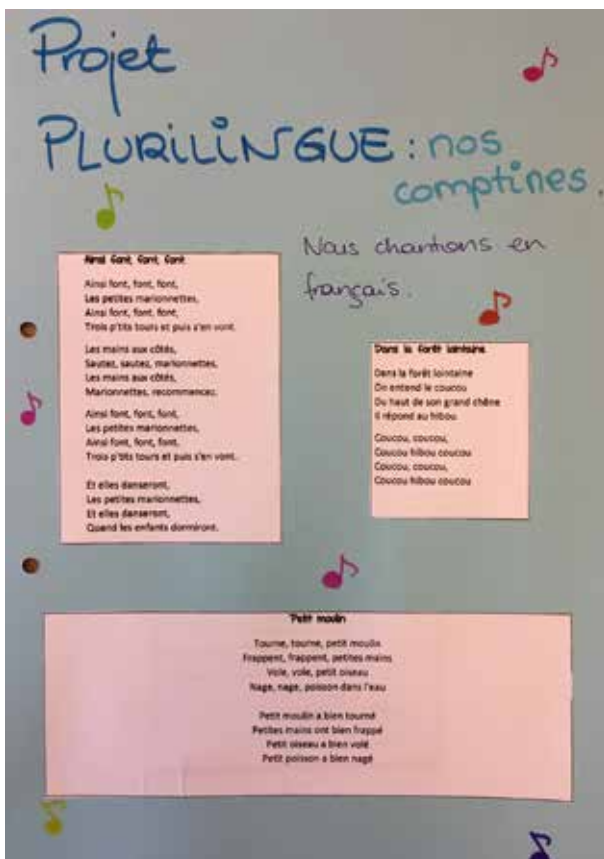 Projet
PLURILINGUE : nos
comptines.
Nous chantons en
français.
Ainsi font, font, font
Ainsi font, font, font,
Les petites marionnettes,
Ainsi font, font, font,
Trois p'tits tours et puis s'en vont.
Les mains aux côtés,
Sautez, sautez, marionnettes,
Les mains aux côtés,
Marionnettes, recommencez.
Ainsi font, font, font,
Les petites marionnettes,
Ainsi font, font, font,
Trois p'tits tours et puis s'en vont.
Et elles danseront,
Les petites marionnettes,
Et elles danseront,
Quand les enfants dormiront.
Dans la forêt lointaine
Dans la forêt lointaine
On entend le coucou
Du haut de son grand chêne
Il répond au hibou
Coucou, coucou,
Coucou hibou coucou
Coucou, coucou,
Coucou hibou coucou
Petit moulin
Tourne, tourne, petit moulin
Frappent, frappent, petites mains
Vole, vole, petit oiseau
Nage, nage, poisson dans l'eau
Petit moulin a bien tourné
Petites mains ont bien frappé
Petit oiseau a bien volé
Petit poisson a bien nagé